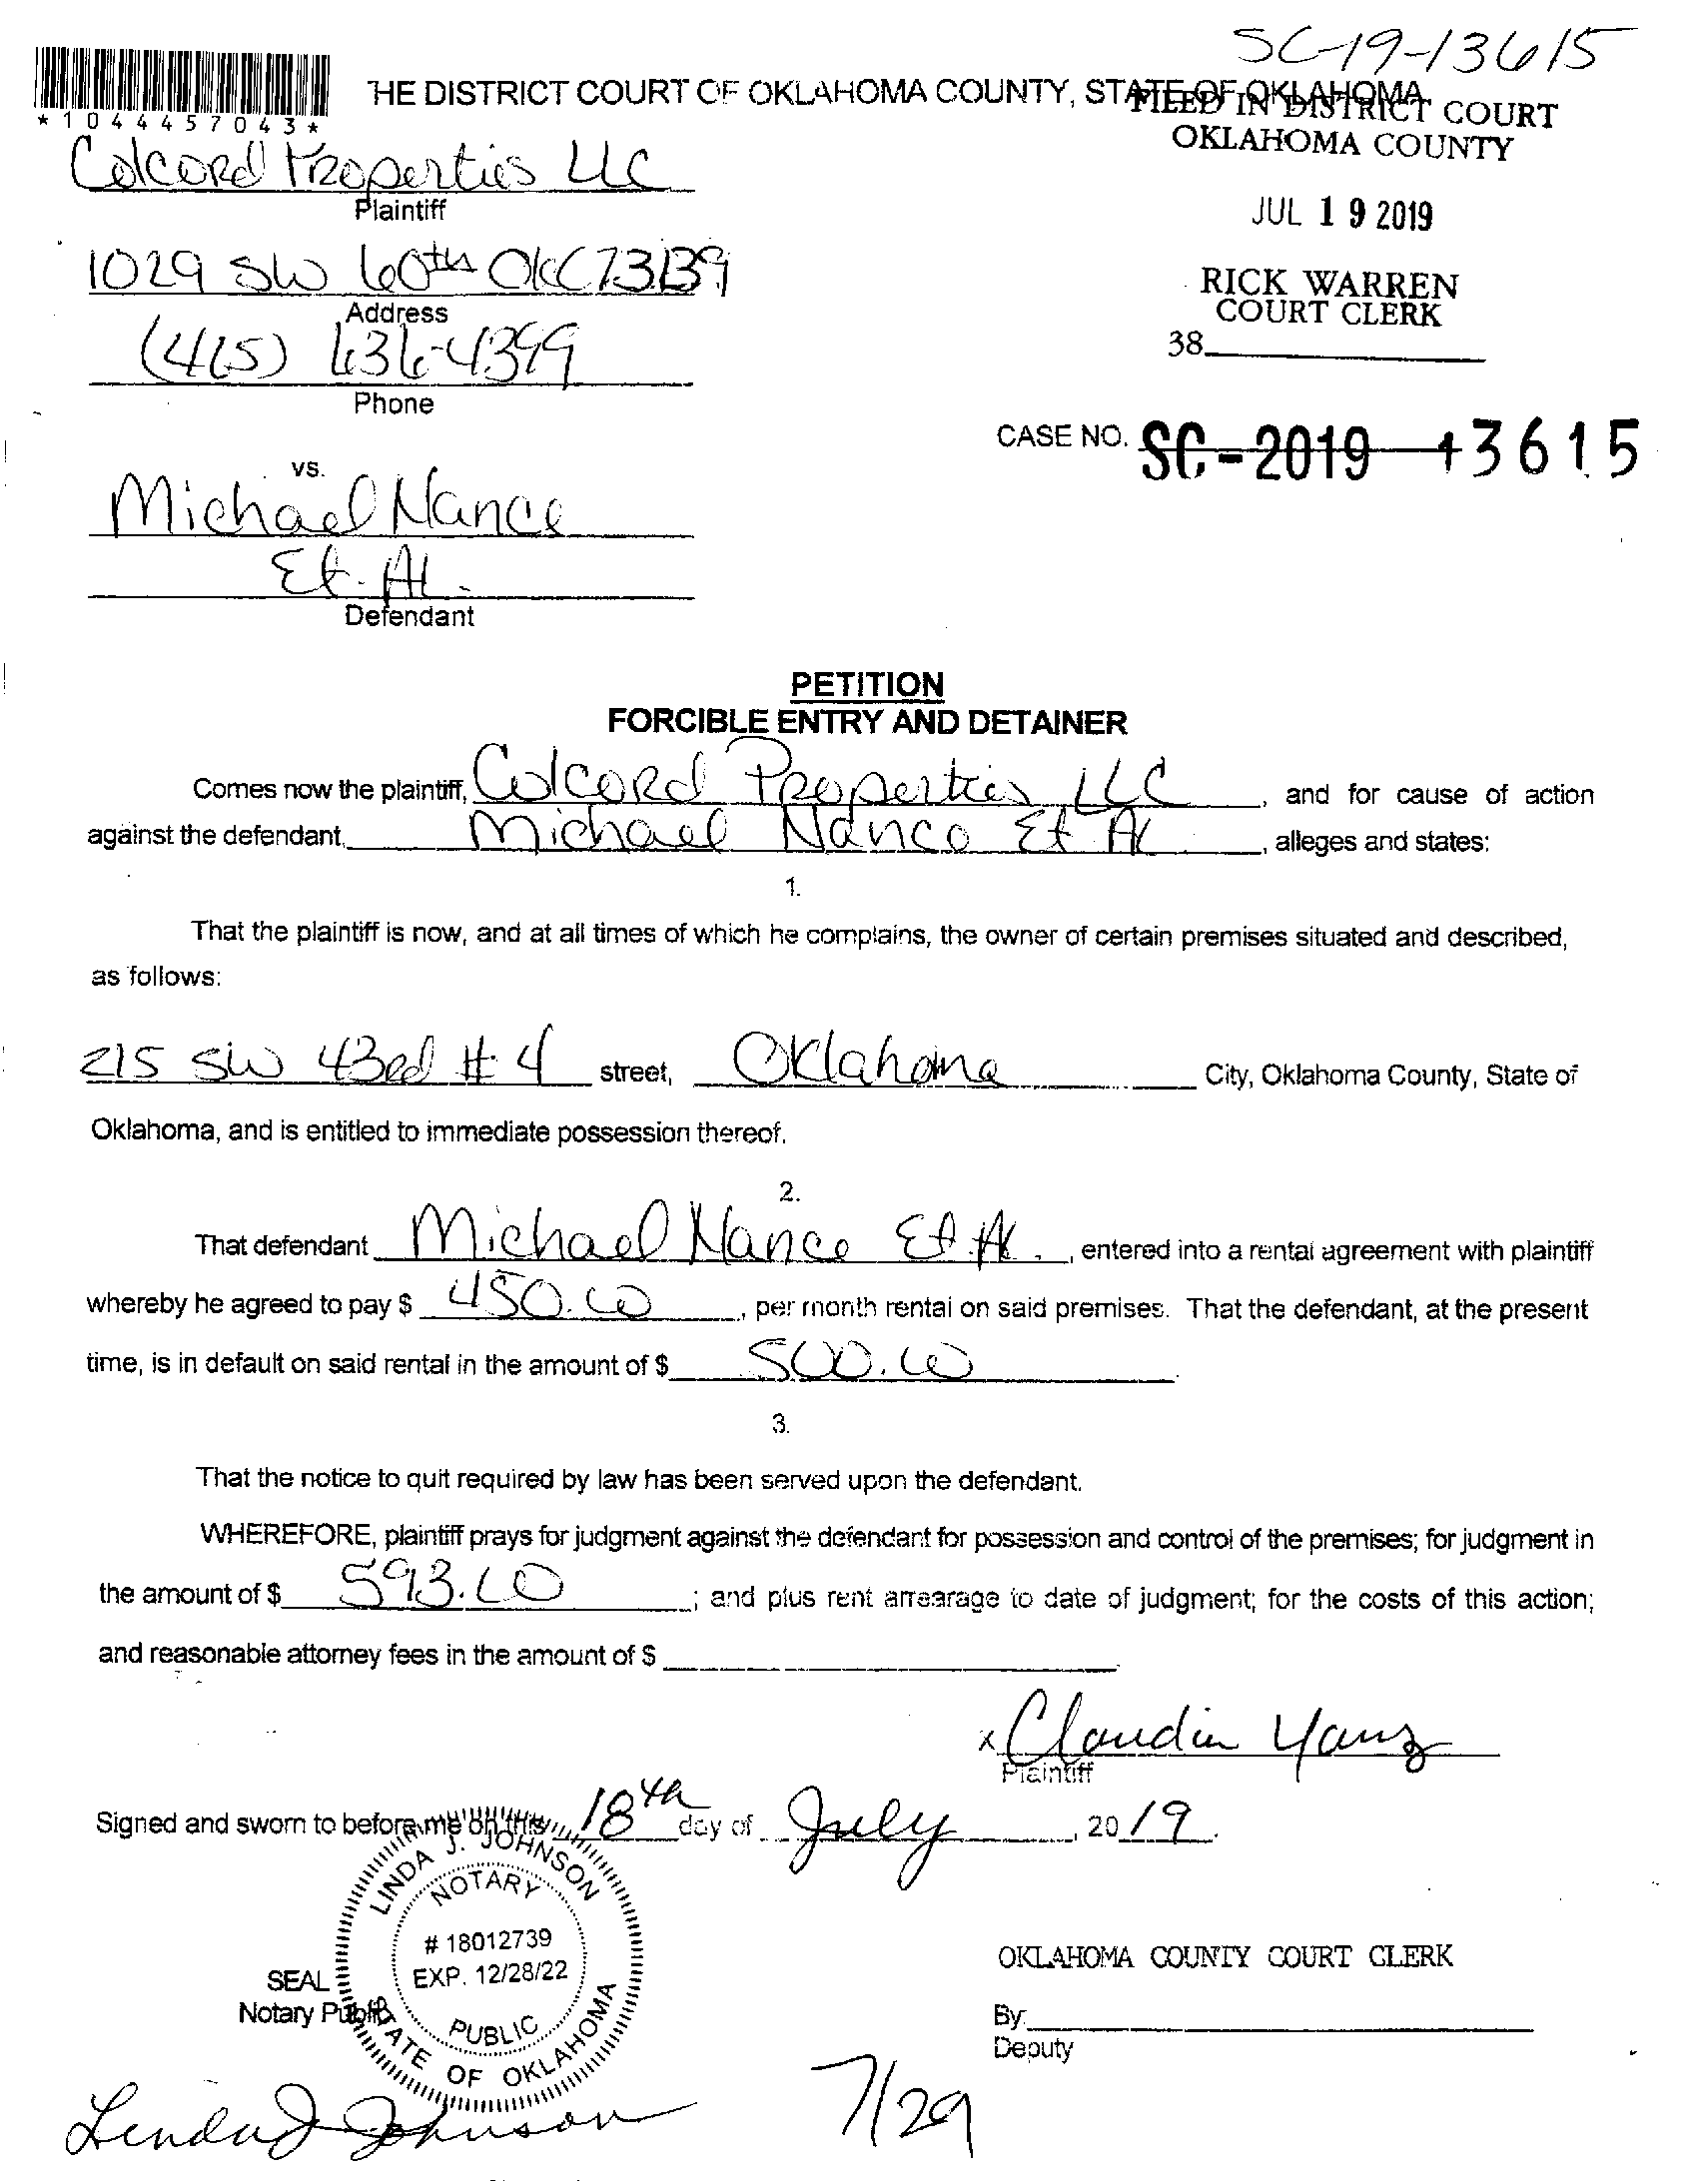 SC-19-13615
THE DISTRICT COURT OF OKLAHOMA COUNTY, STATE OF OKLAHOMA
FILED IN DISTRICT COURT
OKLAHOMA COUNTY
*1044457043*
Colcord Properties LLC
Plaintiff
JUL 19 2019
1029 SW 60th OKC 73139
Address
RICK WARREN
COURT CLERK
38
(405) 636-4399
Phone
CASE NO. SC-2019-13615
vs.
Michael Nance
Et. Al.
Defendant
PETITION
FORCIBLE ENTRY AND DETAINER
Comes now the plaintiff, Colcord Properties LLC, and for cause of action
against the defendant, Michael Nance Et Al, alleges and states:
1.
That the plaintiff is now, and at all times of which he complains, the owner of certain premises situated and described,
as follows:
215 SW 43rd #4 street, Oklahoma City, Oklahoma County, State of
Oklahoma, and is entitled to immediate possession thereof.
2.
That defendant Michael Nance Et. Al., entered into a rental agreement with plaintiff
whereby he agreed to pay $ 450.00, per month rental on said premises. That the defendant, at the present
time, is in default on said rental in the amount of $ 500.00.
3.
That the notice to quit required by law has been served upon the defendant.
WHEREFORE, plaintiff prays for judgment against the defendant for possession and control of the premises; for judgment in
the amount of $ 593.00; and plus rent arrearage to date of judgment; for the costs of this action;
and reasonable attorney fees in the amount of $
x Claudia
Plaintiff
Signed and sworn to before me on this 18th day of July, 2019.
LINDA J. JOHNSON
NOTARY
# 18012739
EXP. 12/28/22
PUBLIC
STATE OF OKLAHOMA
SEAL
Notary Public
OKLAHOMA COUNTY COURT CLERK
By:
Deputy
Linda J Johnson
7/29